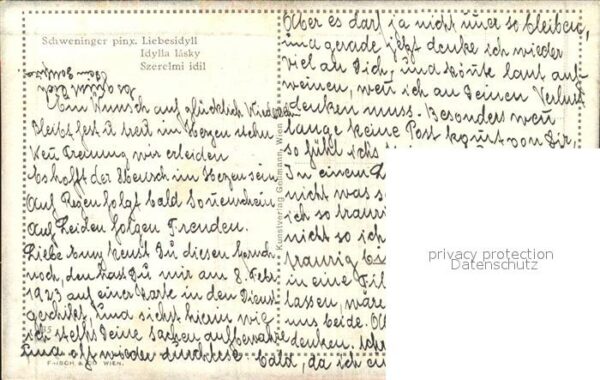 Schweninger pinx. Liebesidyll
Idylla lásky
Szerelmi idil
Ein Wunsch auf glücklich Wiedersehn
bleibt fest u treu im Herzen stehn
Wen Trenung wir erleiden
Es hofft der Mensch im Herzen sein
Auf Regen folgt bald Sonenschein
Auf Leiden folgen Freuden.
Liebe kenst Du diesen Spruch
noch, den hast Du mir am 8. Febr.
1923 auf einer Karte in den Dienst
geschikt, und siehst hierin wie
ich stehts Deine Sachen aufbewahre
und oft wieder durchlese
Kunstverlag Goldmann, Wien
Aber es darf ja nicht imer so bleiben,
und gerade jetzt denke ich wieder
viel an Dich, und könte laut auf-
weinen, wen ich an Deinen Verlust
denken muss. Besonders wen
lange keine Post komt von Dir,
so fühl ichs
In einem
nicht was
ich so traurig
nicht so ich
traurig
in eine
lassen, wäre
uns beide.
denken.
bald, da ich
privacy protection
Datenschutz
WIEN.